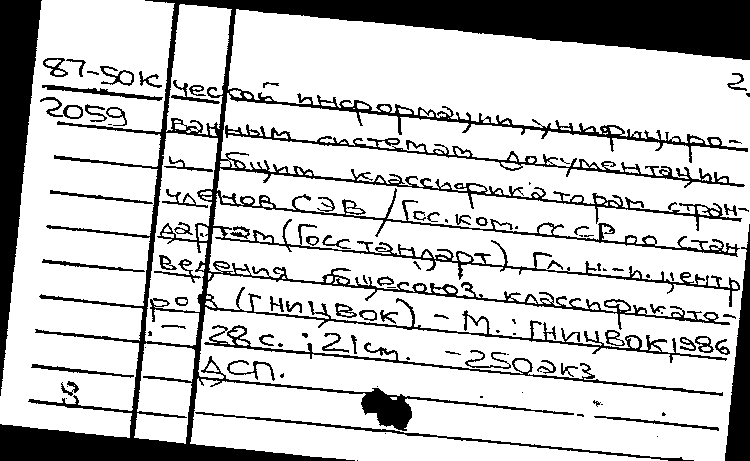 2.
87-50к ческой информации, унифициро-
2059 ванным системам документации
и общим классификаторам стран-
членов СЭВ / Гос. ком. СССР по стан-
дартам (Госстандарт), Гл. н.-и. центр
ведения общесоюз. классификато-
ров (ГНИЦВОК). - М. : ГНИЦВОК, 1986
. - 28 с. ; 21 см. - 250 экз
ДСП.